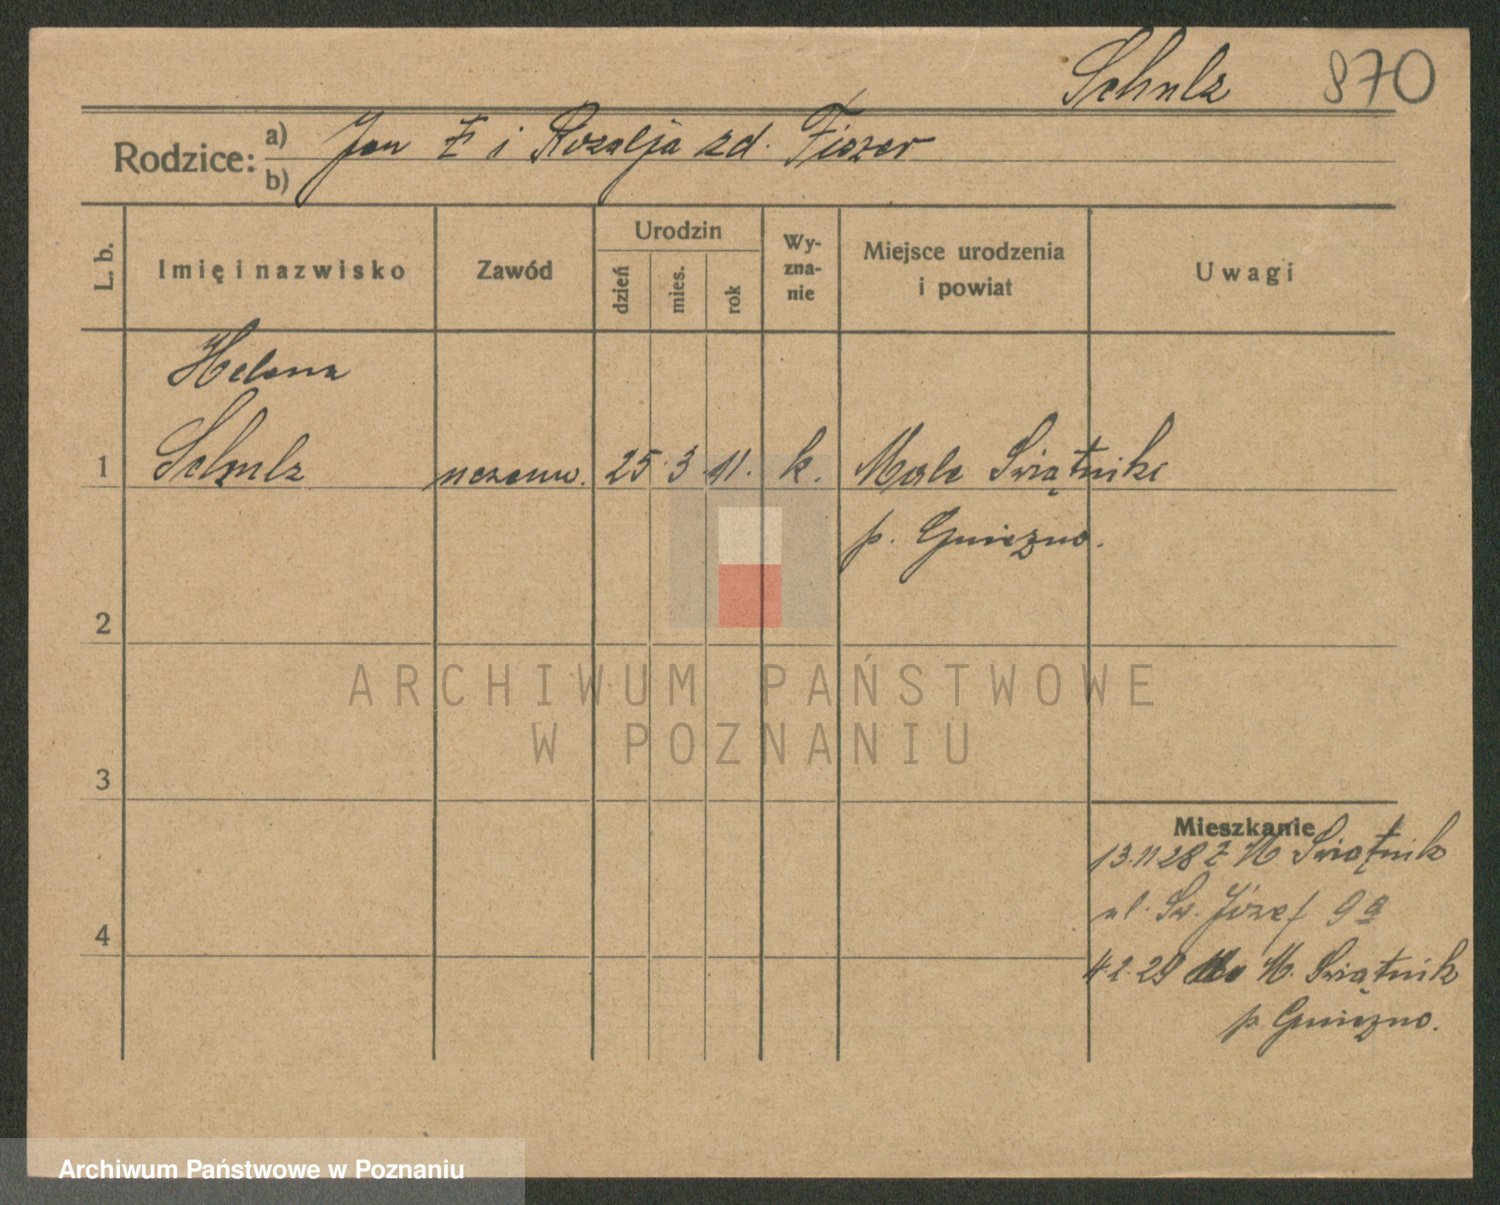 Schulz 870
Rodzice: a) Jan i Rozalja zd.
b)
L. b. Imię i nazwisko Zawód Urodzin dzień mies. rok Wy-zna-nie Miejsce urodzenia i powiat Uwagi
Helena
1 Schulz 25. 3. 11. k. Małe Świątniki
p. Gniezno.
2
ARCHIWUM PAŃSTWOWE
W POZNANIU
3
Mieszkanie
13.11 28 z M Świątnik
4 ul. Św. Józef 9a
4.2.29 M. Świątnik
p Gniezno.
Archiwum Państwowe w Poznaniu